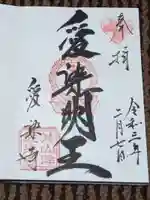 奉拝
令和三年
二月七日
愛染明王
愛染寺